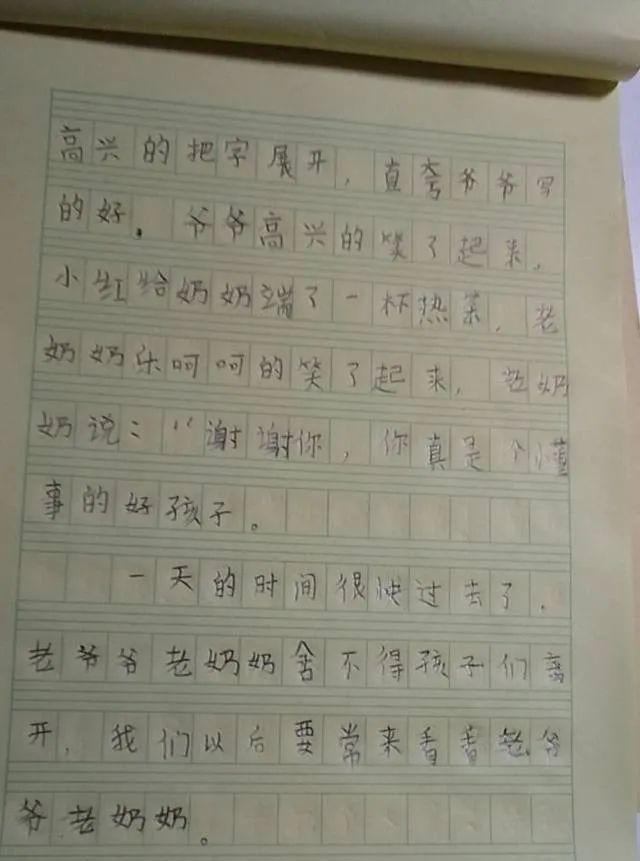 高兴的把字展开，直夸爷爷写
的好。爷爷高兴的笑了起来，
小红给奶奶端了一杯热茶，老
奶奶乐呵呵的笑了起来，老奶
奶说：“谢谢你，你真是个懂
事的好孩子。
一天的时间很快过去了，
老爷爷老奶奶舍不得孩子们离
开，我们以后要常来看看老爷
爷老奶奶。